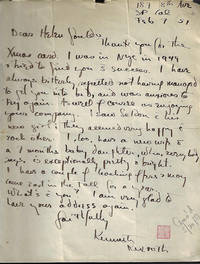 187 8th Ave
SF Cal
Feb 7 51
Dear Helen
Thank you for the
Xmas card. I was in NYC in 1949
& tried to find you & success. I have
always bitterly regretted not having managed
to get you into bed, and was anxious to
try again. As well of course as enjoying
your company. I saw Seldon & his
new girl & they seemed very happy
each other. I too have a new wife &
a 7 months baby daughter, who everybody
says is exceptionally pretty & bright.
I have a couple of teaching offers & may
come East in the Fall for a year.
What's I am very glad to
have your address again.
faithfully
Kenneth
Rexroth